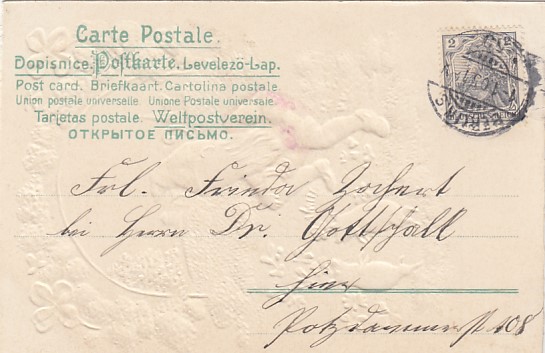 Carte Postale.
Dopisnice. Postkarte. Levelező-Lap.
Post card. Briefkaart. Cartolina postale.
Union postale universelle. Unione Postale universale.
Tarjetas postale. Weltpostverein.
ОТКРЫТОЕ ПИСЬМО.
2 2
Frl. Frieda Zochert
bei Herrn Dr. Gottschall
hier
Potzdammerst 108